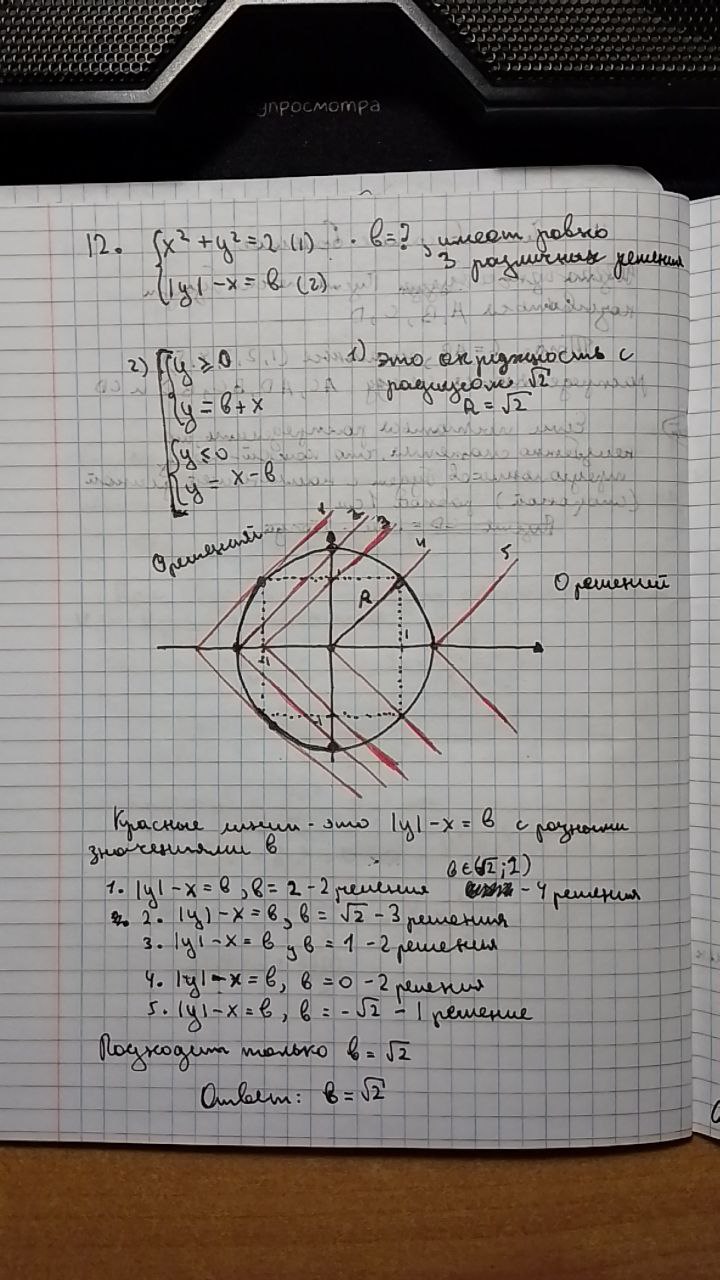 упросмотра
12. { x² + y² = 2 (1) . в = ?, имеет ровно
3 различных решения
{ |y| - x = в (2)
2) [ { y ≥ 0
{ y = в + x
{ y ≤ 0
{ y = x - в
1) это окружность с
радиусом √2
R = √2
0 решений
1 2 3 4 5
0 решений
R
-1 1
-1
Красные линии - это |y| - x = в с разными
значениями в
в ∈ (√2; 2)
1. |y| - x = в, в = 2 - 2 решения - 4 решения
2. |y| - x = в, в = √2 - 3 решения
3. |y| - x = в, в = 1 - 2 решения
4. |y| - x = в, в = 0 - 2 решения
5. |y| - x = в, в = -√2 - 1 решение
Подходит только в = √2
Ответ: в = √2